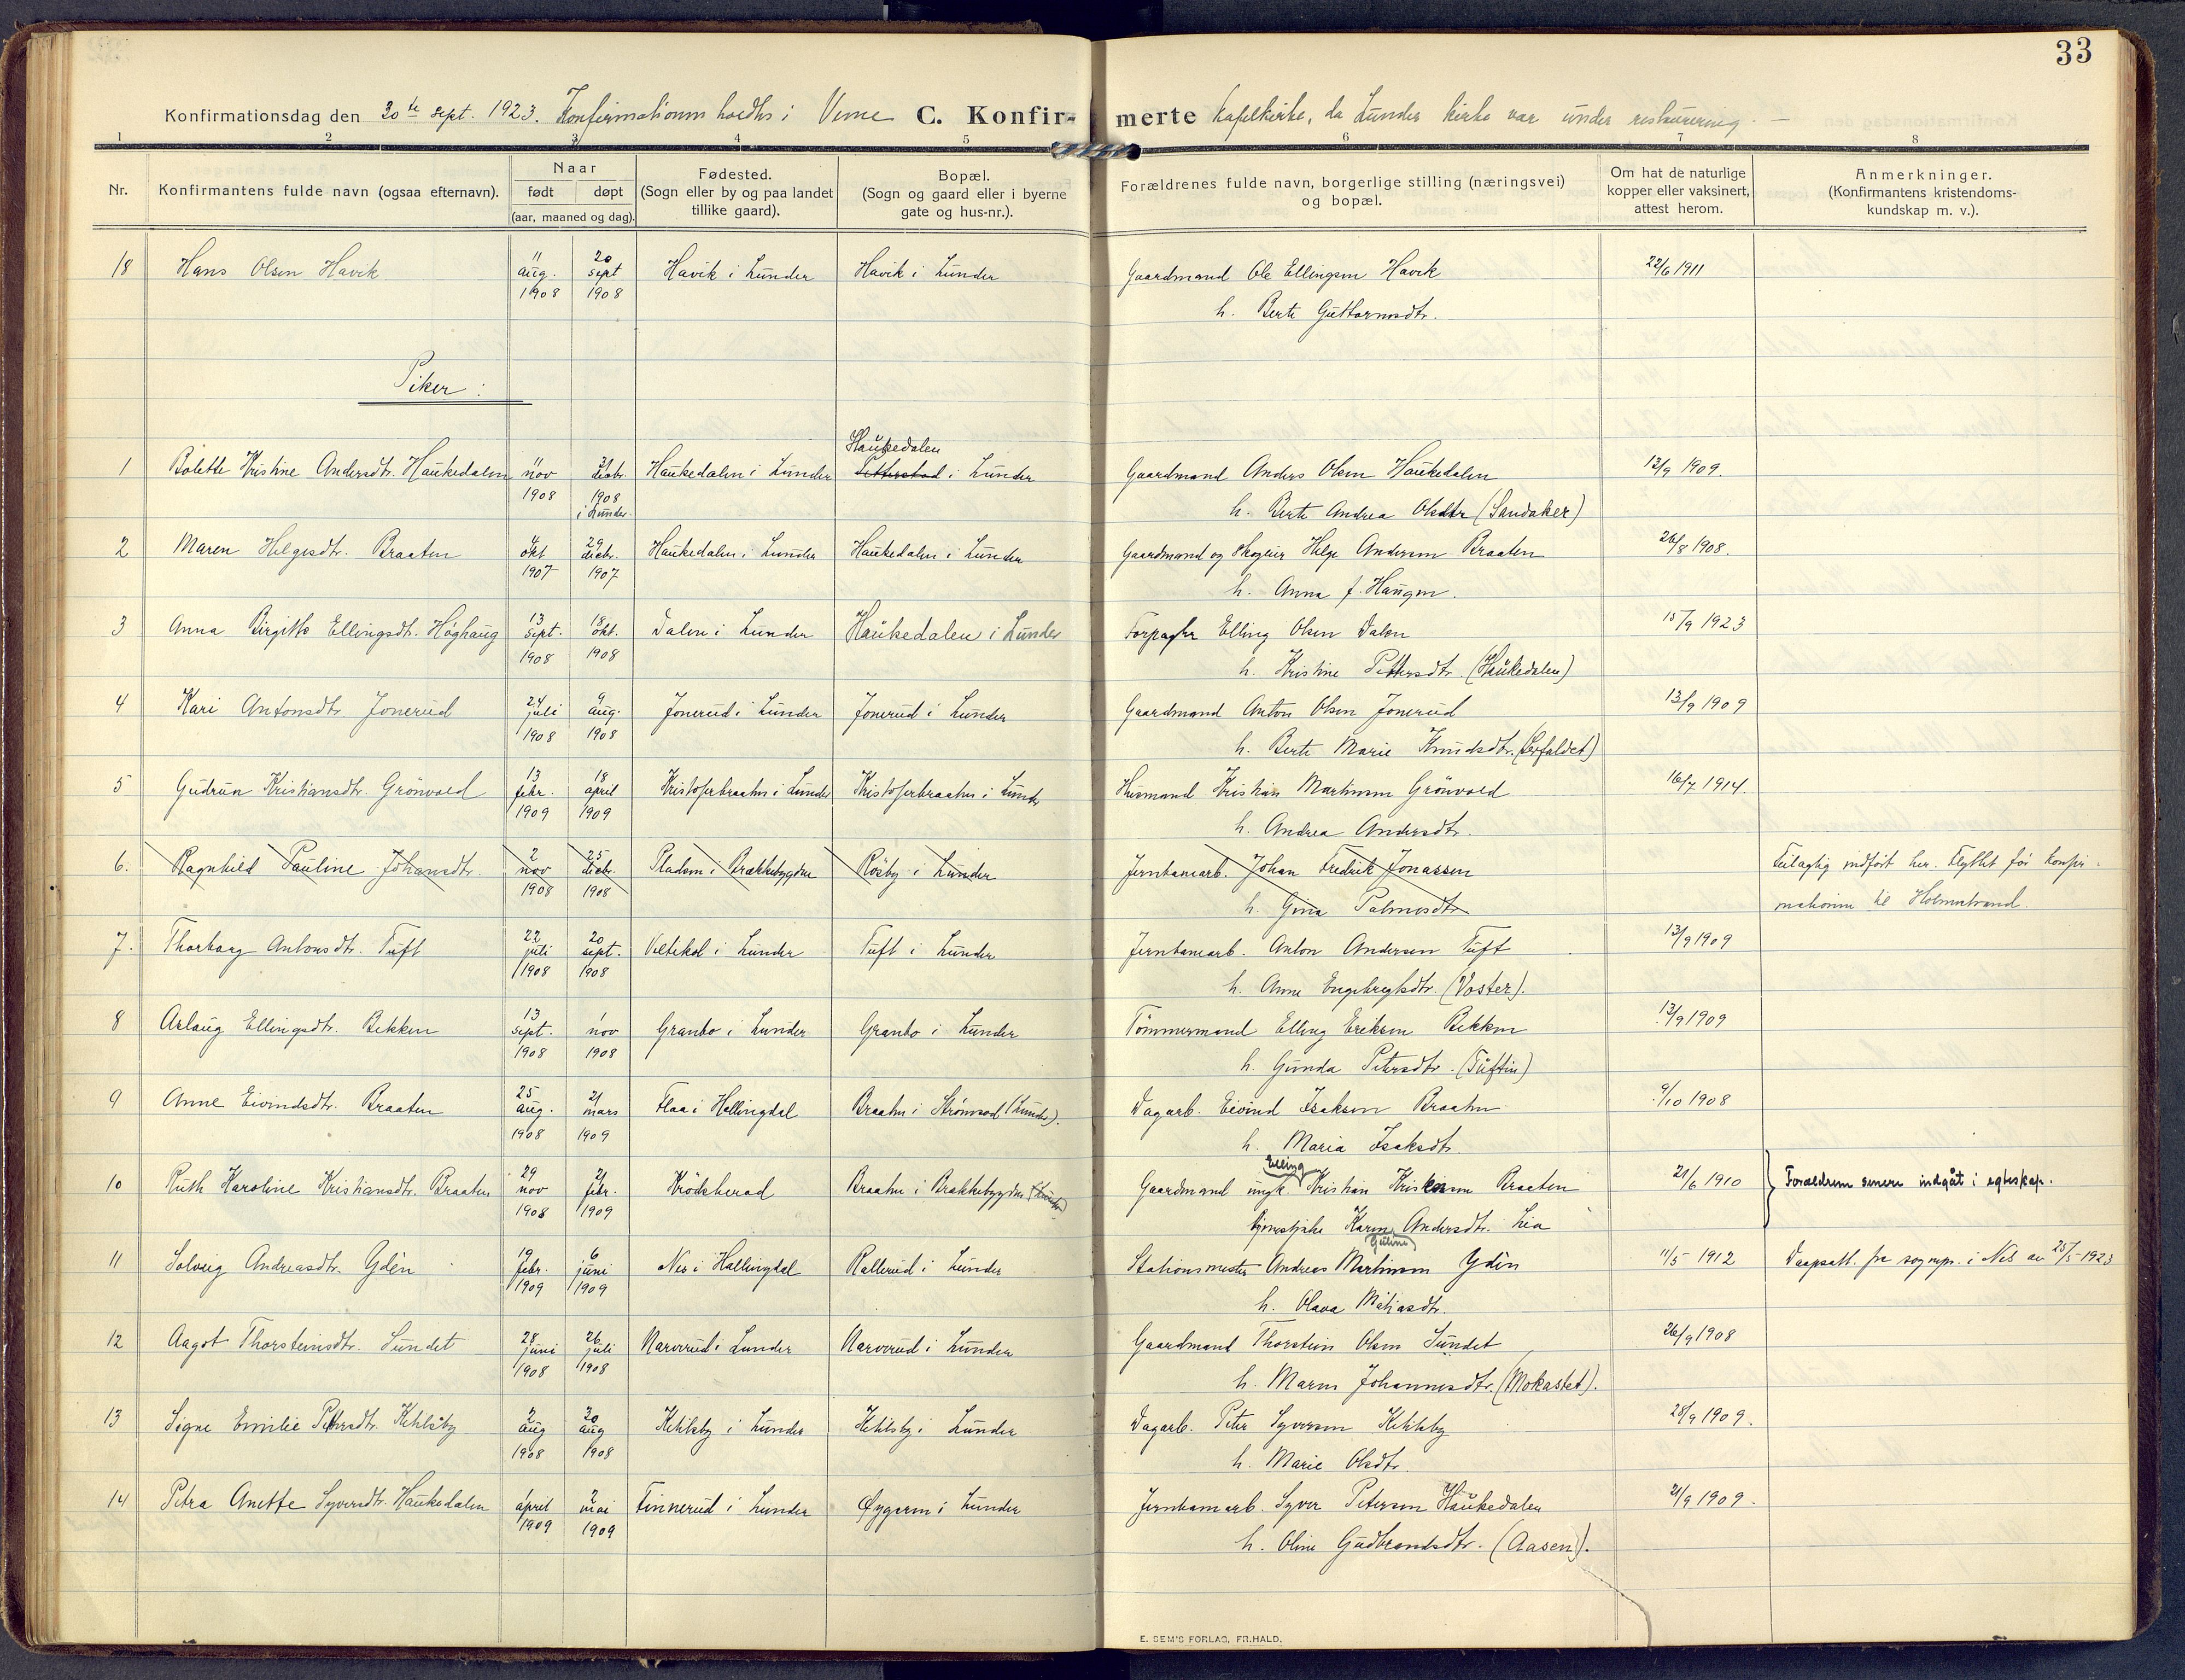 33
Konfirmationsdag den 30te sept. 1923. Konfirmationen holdtes i Veme C. Konfirmerte kapelkirke, da Lunder kirke var under restaurering. —
1 2 3 4 5 6 7 8
Nr. Konfirmantens fulde navn (ogsaa efternavn). Naar født døpt (aar, maaned og dag). Fødested. (Sogn eller by og paa landet tillike gaard). Bopæl. (Sogn og gaard eller i byerne gate og hus-nr.). Forældrenes fulde navn, borgerlige stilling (næringsvei) og bopæl. Om hat de naturlige kopper eller vaksinert, attest herom. Anmerkninger. (Konfirmantens kristendoms- kundskap m. v.).
18 Hans Olsen Havik 11 aug. 1908 20 sept 1908 Havik i Lunder Havik i Lunder Gaardmand Ole Ellingsen Havik 22/6 1911
h. Berte Guttormsdtr.
Piker:
1 Bolette Kristine Andersdtr. Haukedalen nov 1908 decbr. 1908 i Lunder Haukedalen i Lunder Haukedalen i Lunder Gaardmand Anders Olsen Haukedalen 13/9 1909.
h. Berte Andrea Olsdtr (Sandaker)
2 Maren Helgesdtr. Braaten 4 okt 1907 29 decbr. 1907 Haukedalen i Lunder Haukedalen i Lunder Gaardmand og skogeier Helge Andersen Braaten 26/8 1908.
h. Anna f. Haugen.
3 Anna Birgitte Ellingsdtr. Høghaug 13 sept. 1908 18 okt. 1908 Dalen i Lunder Haukedalen i Lunder Forpagter Elling Olsen Dalen 15/9 1923
h. Kristine Pettersdtr. (Haukedalen)
4 Kari Antonsdtr Jonerud 24 juli 1908 9 aug. 1908 Jonerud i Lunder Jonerud i Lunder Gaardmand Anton Olsen Jonerud 13/9 1909
h. Berte Marie Knudsdtr.
5 Gudrun Kristiansdtr. Grönvold 13 febr. 1909 18 april 1909 Kristoferbraaten i Lunder Kristoferbraaten i Lunder Husmand Kristian Martinsen Grönvold 16/7 1914.
h. Andrea Andersdtr.
6. Ragnhild Pauline Johansdtr. 2 nov 1908 25 decbr. 1908 Pladsen i Brækkebygden Rösby i Lunder Jernbanearb. Johan Fredrik Jonassen Feilagtig indført her. Flyttet før konfir-
h. Gina Palmesdtr mationen til Holmestrand.
7. Thorborg Antonsdtr. Tuft 22 juli 1908 20 sept. 1908 Veltekol i Lunder Tuft i Lunder Jernbanearb. Anton Andersen Tuft 13/9 1909
h. Anne Engebregtsdtr. (Voster).
8 Aslaug Ellingsdtr. Bekken 13 sept. 1908 1 nov 1908 Granbo i Lunder Granbo i Lunder Tömmermand Elling Eriksen Bekken 13/9 1909
h. Gunda Petersdtr. (Tuftin)
9 Anne Eivindsdtr. Braaten 25 aug. 1908 21 mars 1909 Flaa i Hallingdal Braaten i Strømsod (Lunder). Dagarb. Eivind Isaksen Braaten 9/10 1908
h. Maria Isaksdtr.
10 Ruth Karoline Kristiansdtr. Braaten 29 nov 1908 21 febr. 1909 Krödsherad Braaten i Brækkebygden (Lunder) Gaardmand ungk. Elling Kristian Braaten 21/6 1910 Forældrene senere indgåt i egteskap.
Karen Guline Andersdtr. Lia
11 Solveig Andreasdtr. Ydén 19 febr. 1909 6 juni 1909 Nes i Hallingdal Rallerud i Lunder Stationsmester Andreas Martinsen Ydén 11/5 1912 Daapsatt. fra sognepr. i Nes av 25/5 1923
h. Olava Matiasdtr.
12 Aagot Thorsteinsdtr. Sundet 28 juni 1908 26 juli 1908 Narverud i Lunder Narverud i Lunder Gaardmand Thorstein Olsen Sundet 26/9 1908
h. Maren Johannesdtr. (Mokastet).
13 Signe Emilie Pettersdtr. Ketilsby 2 aug 1908 30 aug 1908 Ketilsby i Lunder Ketilsby i Lunder Dagarb. Peter Syversen Ketilsby 28/9 1909.
h. Marie Olsdtr.
14 Petra Anette Syversdtr. Haukedalen april 1909 2 mai 1909 Finnerud i Lunder Øygarn i Lunder Jernbanearb. Syver Petersen Haukedalen 21/9 1909.
h. Oline Gudbrandsdtr. (Aasen).
E. SEM'S FORLAG, FR.HALD.